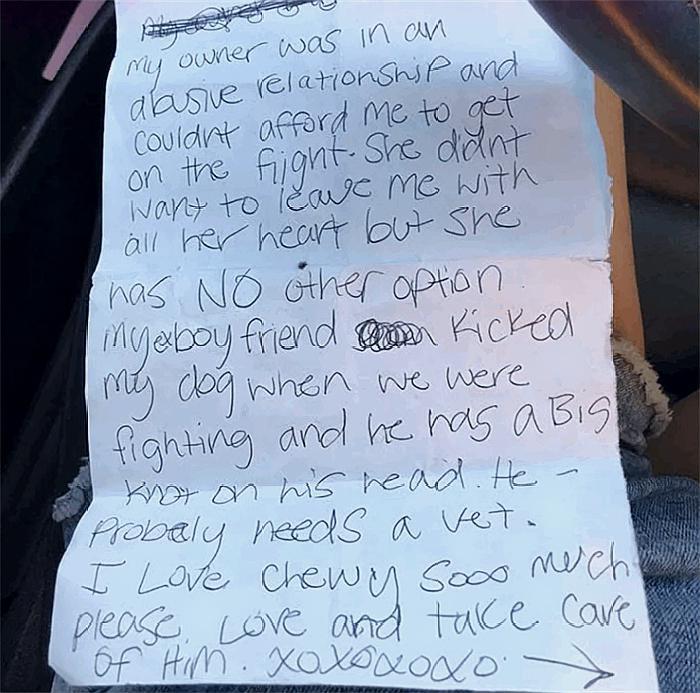 My owner was in an
abusive relationship and
couldnt afford me to get
on the flight. She didnt
want to leave me with
all her heart but she
has NO other option.
My exboyfriend kicked
my dog when we were
fighting and he has a Big
knot on his head. He -
Probaly needs a vet.
I Love chewy sooo much
please Love and take care
of Him. xoxoxoxo. →